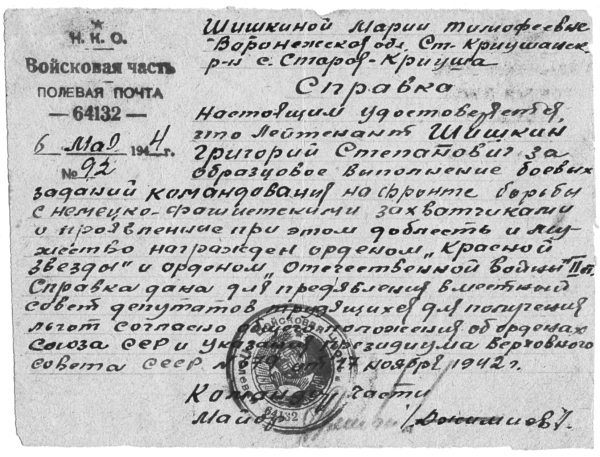 Н. К. О.
Войсковая часть
ПОЛЕВАЯ ПОЧТА
— 64132 —
6 мая 1944 г.
№ 92
Шишкиной Марии Тимофеевне
Воронежская обл. Ст-Криушанск.
р-н с. Старая-Криуша
Справка
Настоящим удостоверяется,
что Лейтенант Шишкин
Григорий Степанович за
образцовое выполнение боевых
заданий командования на фронте борьбы
с немецко-фашистскими захватчиками
и проявленние при этом доблесть и му-
жество награжден орденом „Красной
звезды" и орденом „Отечественной Войны" II ст.
Справка дана для предявления в местный
совет депутатов трудящихся для получения
льгот согласно положения об орденах
Союза ССР и указания президиума Верховного
совета СССР от 17 ноября 1942 г.
Командир части
Майор
64132